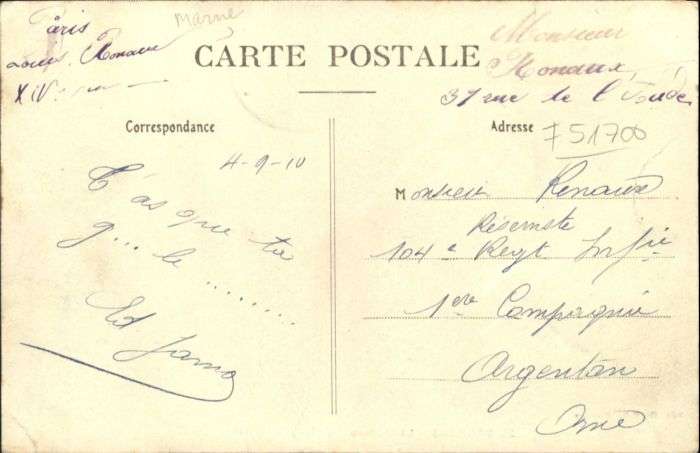 Paris
Marne
Louis Renaux
XIV
CARTE POSTALE
Monsieur
Renaux,
37 rue de l'
Correspondance
Adresse
751700
4-9-10
T'as que ta
g... le ........
Ed
Monsieur Renaux
Réserviste
104e Regt Infie
1ère Compagnie
Argentan
Orne